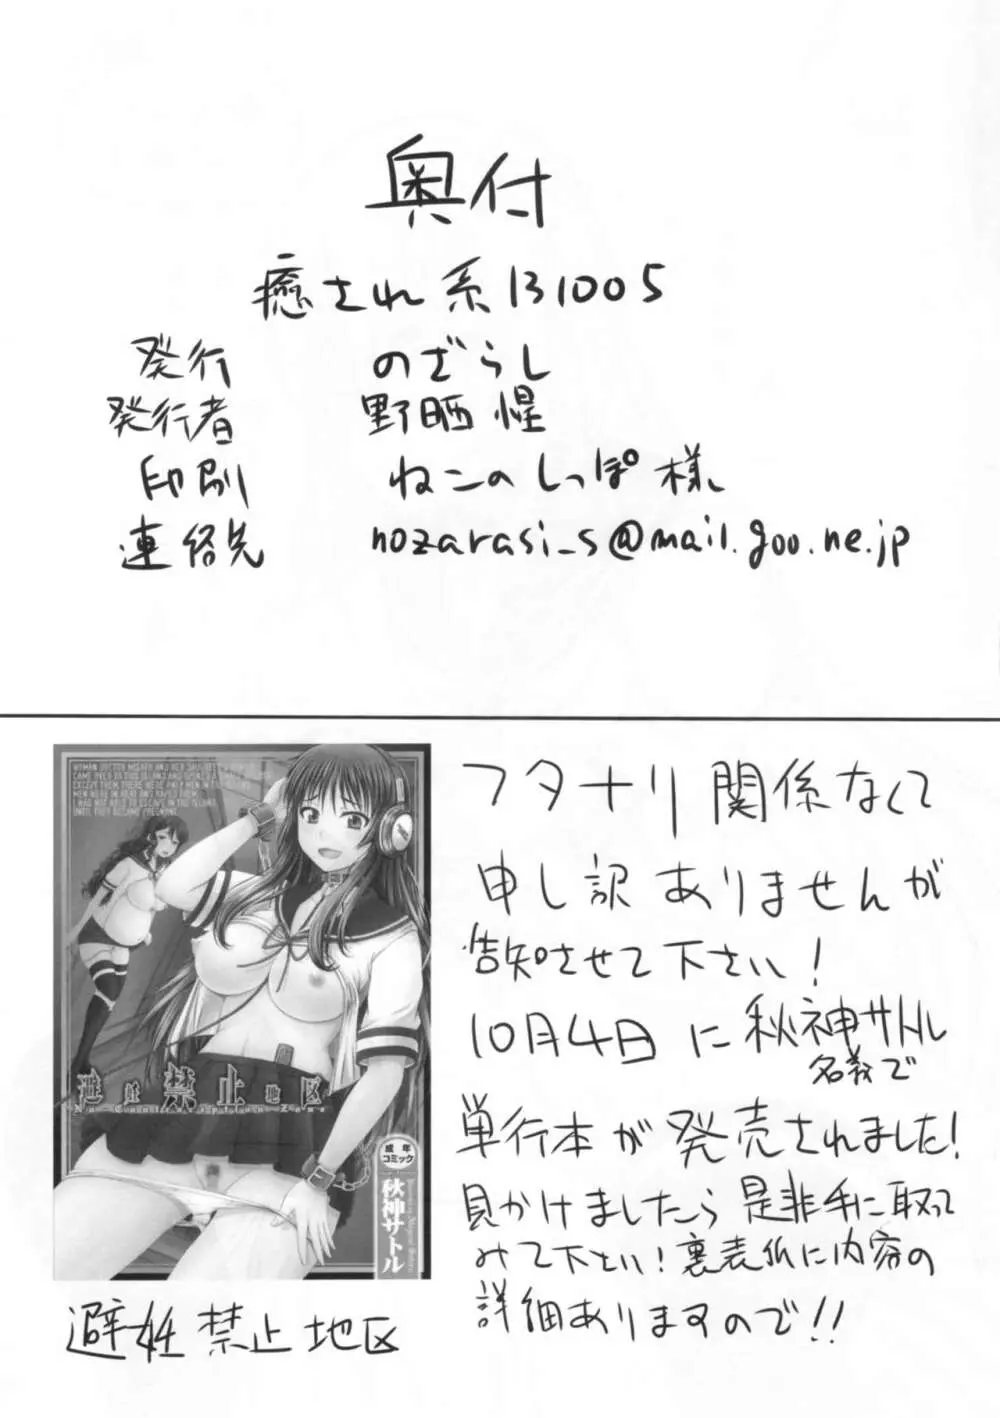 奥付
癒され系131005
発行 のざらし
発行者 野晒惺
印刷 ねこのしっぽ様
連絡先 nozarasi_s@mail.goo.ne.jp
避妊禁止地区
No-Contraception Zone
成年
コミック
秋神サトル
避妊禁止地区
フタナリ関係なくて
申し訳ありませんが
告知させて下さい!
10月4日に秋神サトル
名義で
単行本が発売されました!
見かけましたら是非手に取って
みて下さい!裏表紙に内容の
詳細ありますので!!